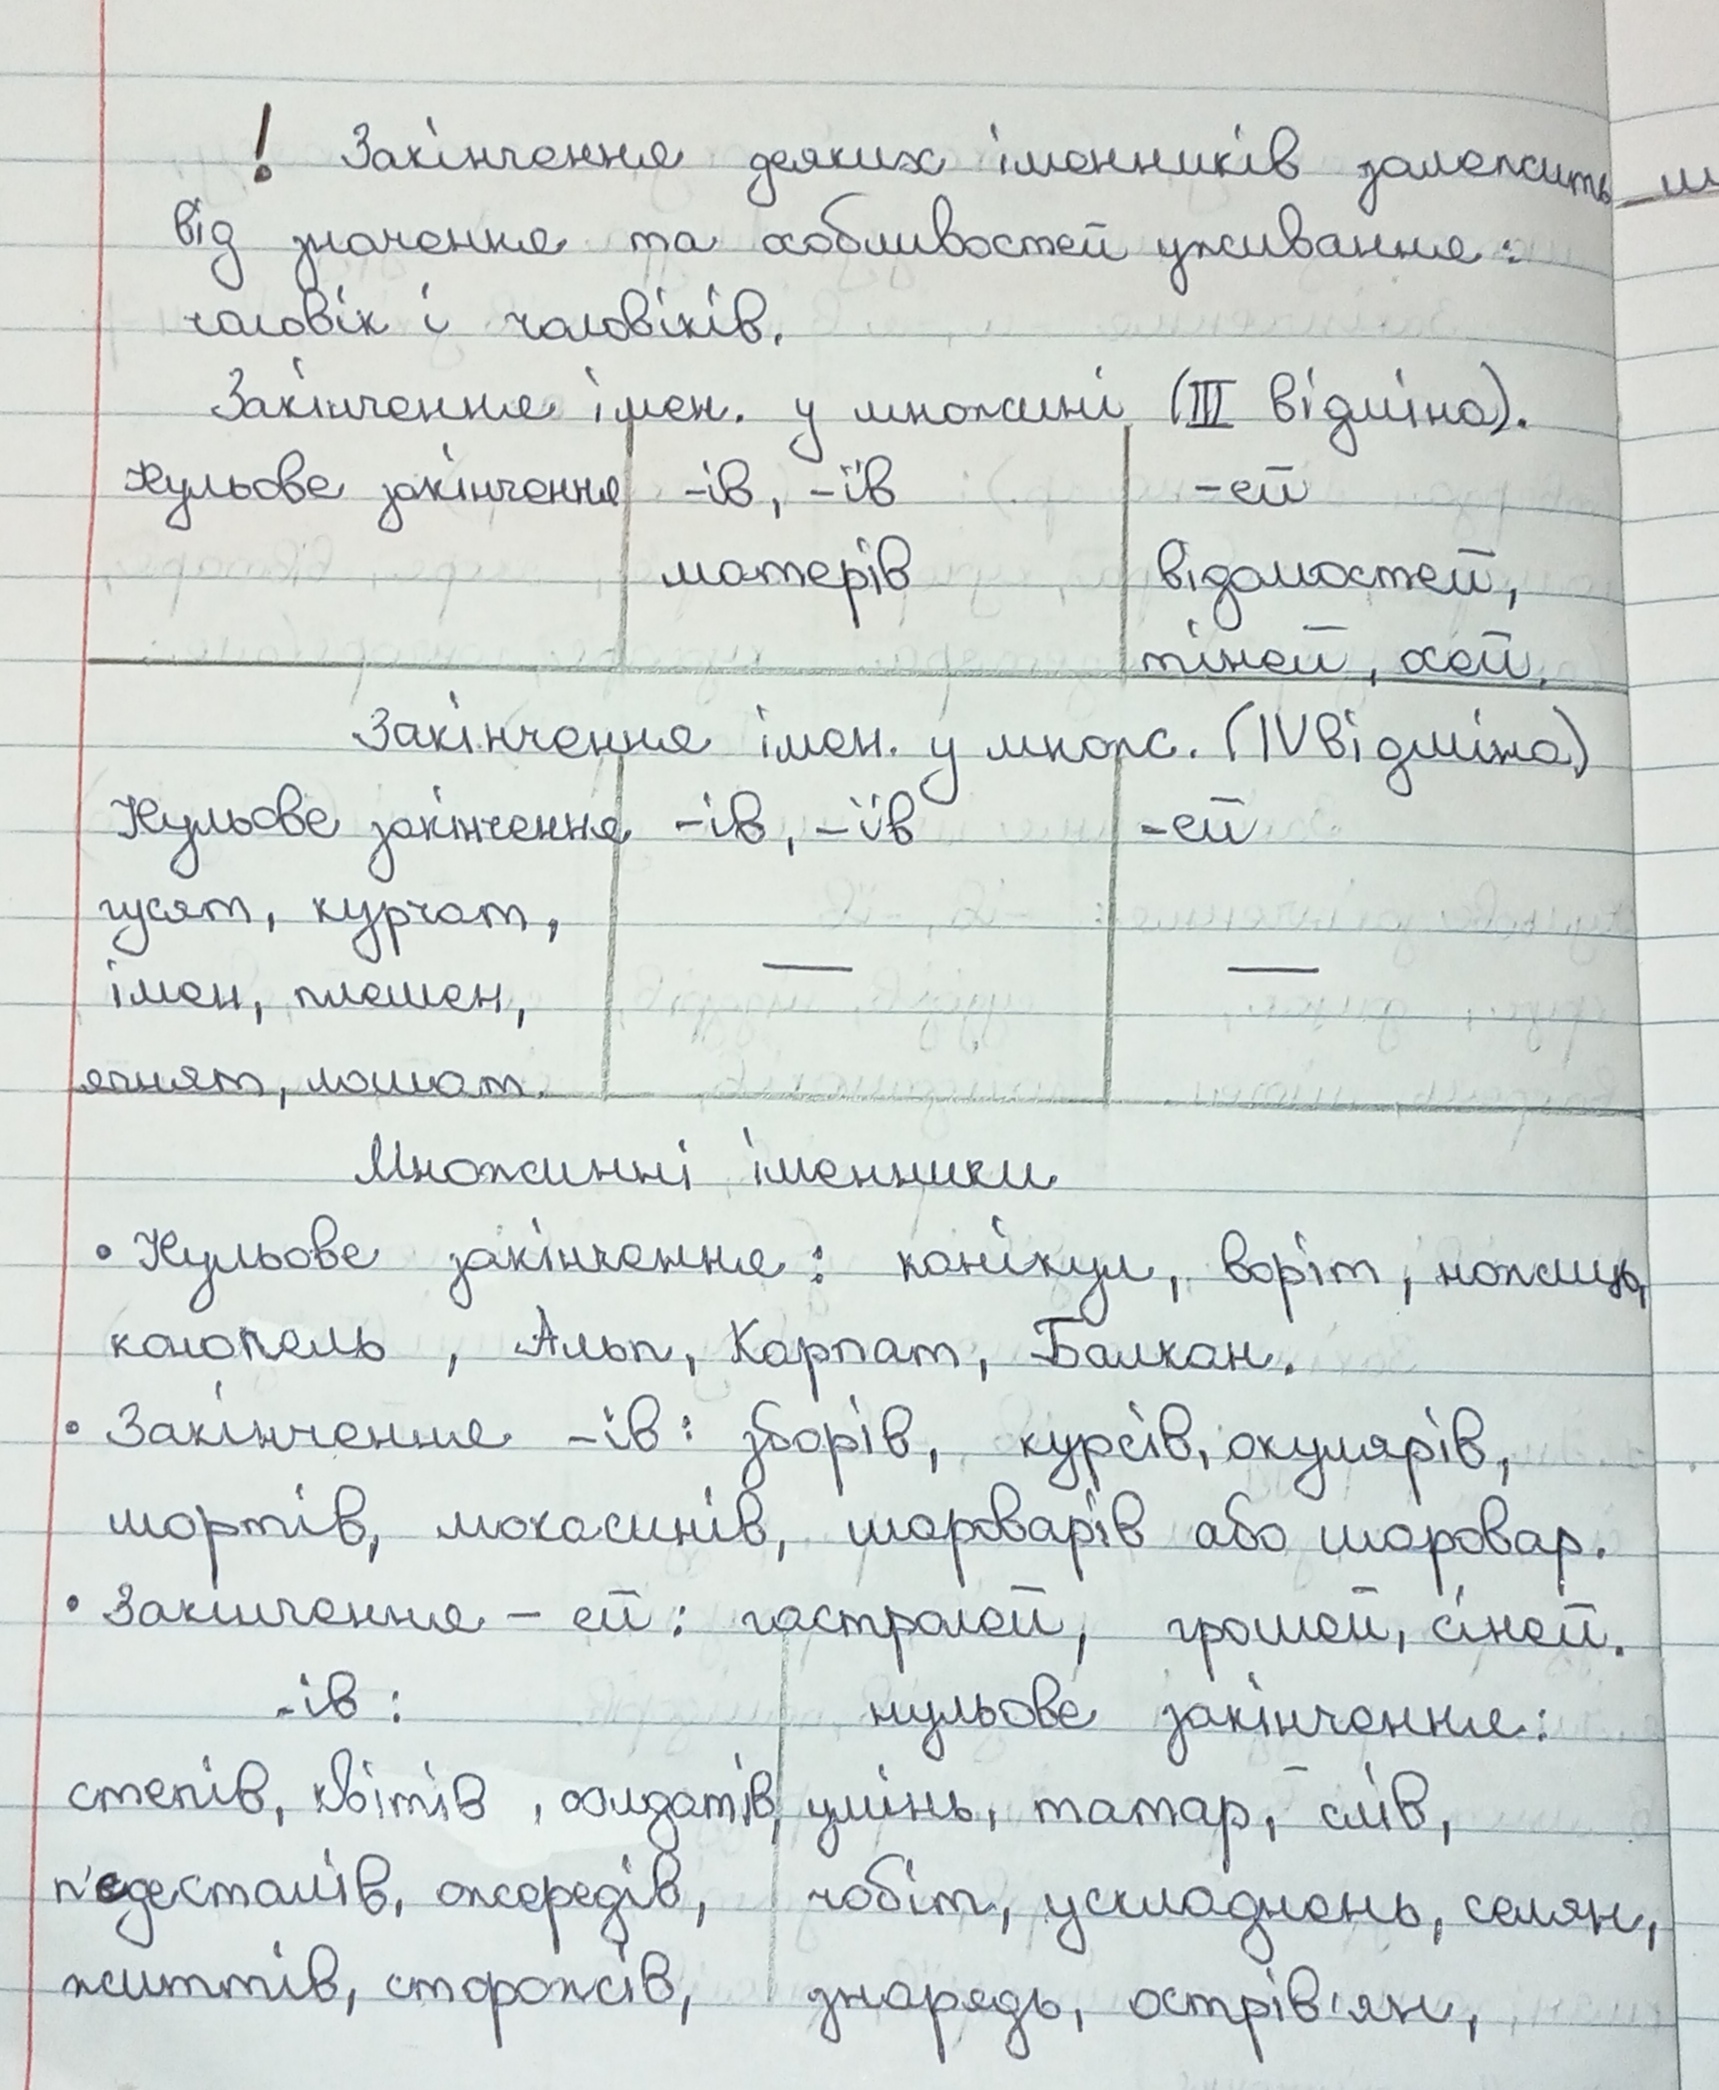 ! Закінчення деяких іменників залежить
від значення та особливостей уживання:
чоловік і чоловіків.
Закінчення імен. у множині (III відміна).
Нульове закінчення -ів, -їв -ей
матерів відомостей,
тіней, осей.
Закінчення імен. у множ. (IV відміна)
Нульове закінчення -ів, -їв -ей
гусят, курчат,
імен, племен, — —
ягнят, лошат.
Множинні іменники
• Нульове закінчення: канікул, воріт, ножиць,
конопель, Альп, Карпат, Балкан.
• Закінчення -ів: зборів, курсів, окулярів,
шортів, мокасинів, шароварів або шаровар.
• Закінчення - ей: гастролей, грошей, сіней.
-ів: нульове закінчення:
степів, квітів, солдатів, умінь, татар, слів,
п'єдесталів, ожередів, чобіт, ускладнень, селян,
життів, сторожів, знарядь, острів'ян,